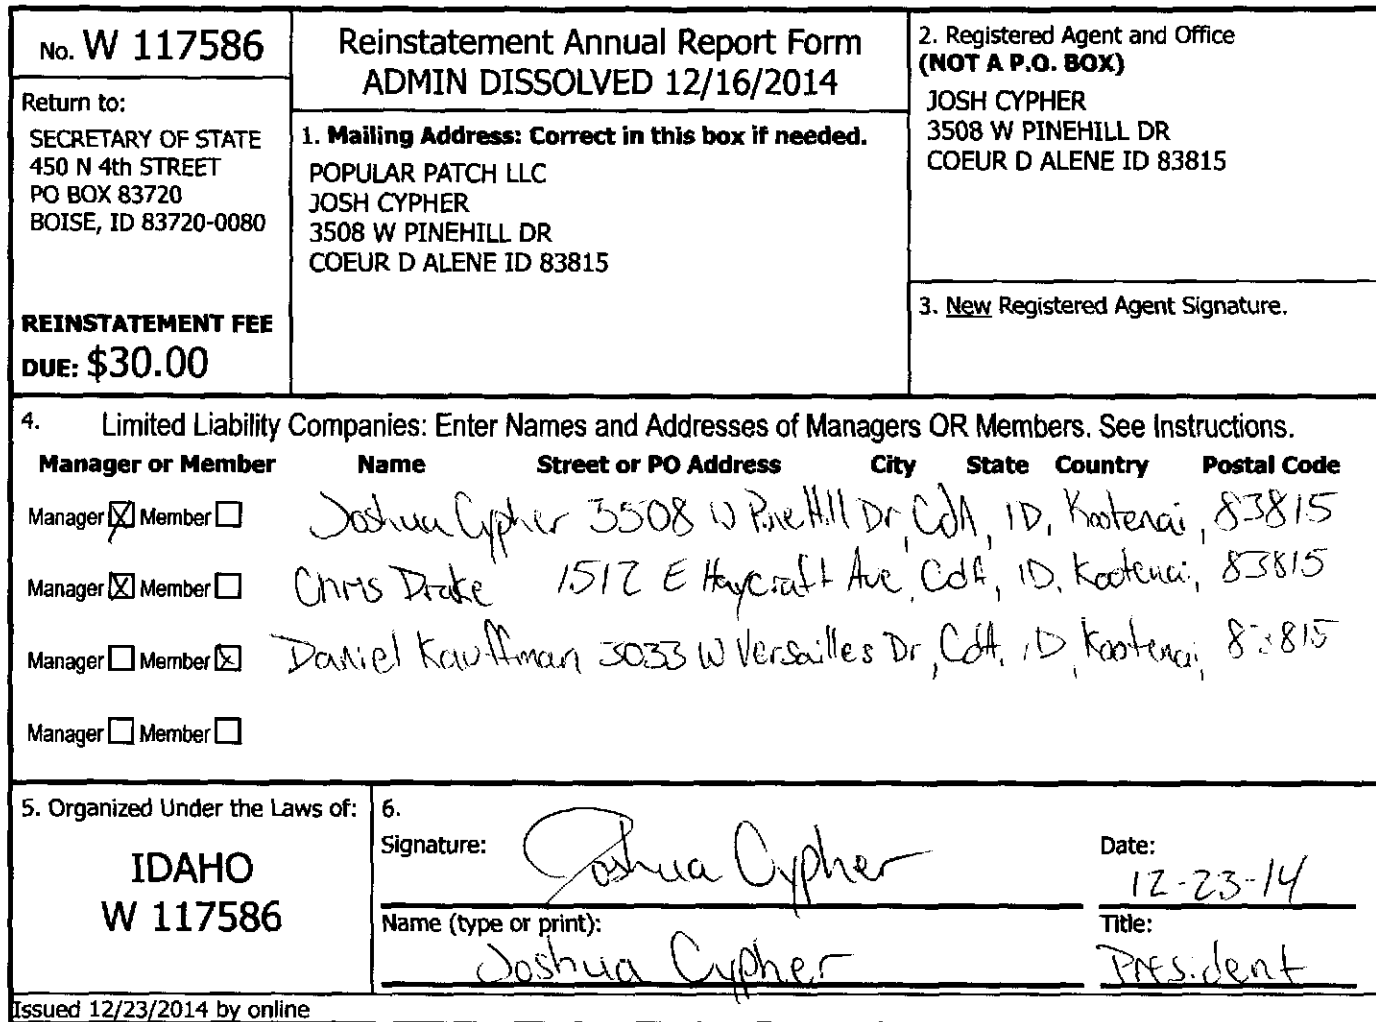 No. W 117586
Return to:
SECRETARY OF STATE
450 N 4th STREET
PO BOX 83720
BOISE, ID 83720-0080
REINSTATEMENT FEE
DUE: $30.00
Reinstatement Annual Report Form
ADMIN DISSOLVED 12/16/2014
1. Mailing Address: Correct in this box if needed.
POPULAR PATCH LLC
JOSH CYPHER
3508 W PINEHILL DR
COEUR D ALENE ID 83815
2. Registered Agent and Office
(NOT A P.O. BOX)
JOSH CYPHER
3508 W PINEHILL DR
COEUR D ALENE ID 83815
3. New Registered Agent Signature.
4. Limited Liability Companies: Enter Names and Addresses of Managers OR Members. See Instructions.
Manager or Member Name Street or PO Address City State Country Postal Code
Manager ☒ Member ☐ Joshua Cypher 3508 W PineHill Dr, CdA, ID, Kootenai, 83815
Manager ☒ Member ☐ Chris Drake 1512 E Haycraft Ave, CdA, ID, Kootenai, 83815
Manager ☐ Member ☒ Daniel Kauffman 3033 W Versailles Dr, CdA, ID, Kootenai, 83815
Manager ☐ Member ☐
5. Organized Under the Laws of:
IDAHO
W 117586
6.
Signature: Joshua Cypher
Date: 12-23-14
Name (type or print): Joshua Cypher
Title: President
Issued 12/23/2014 by online